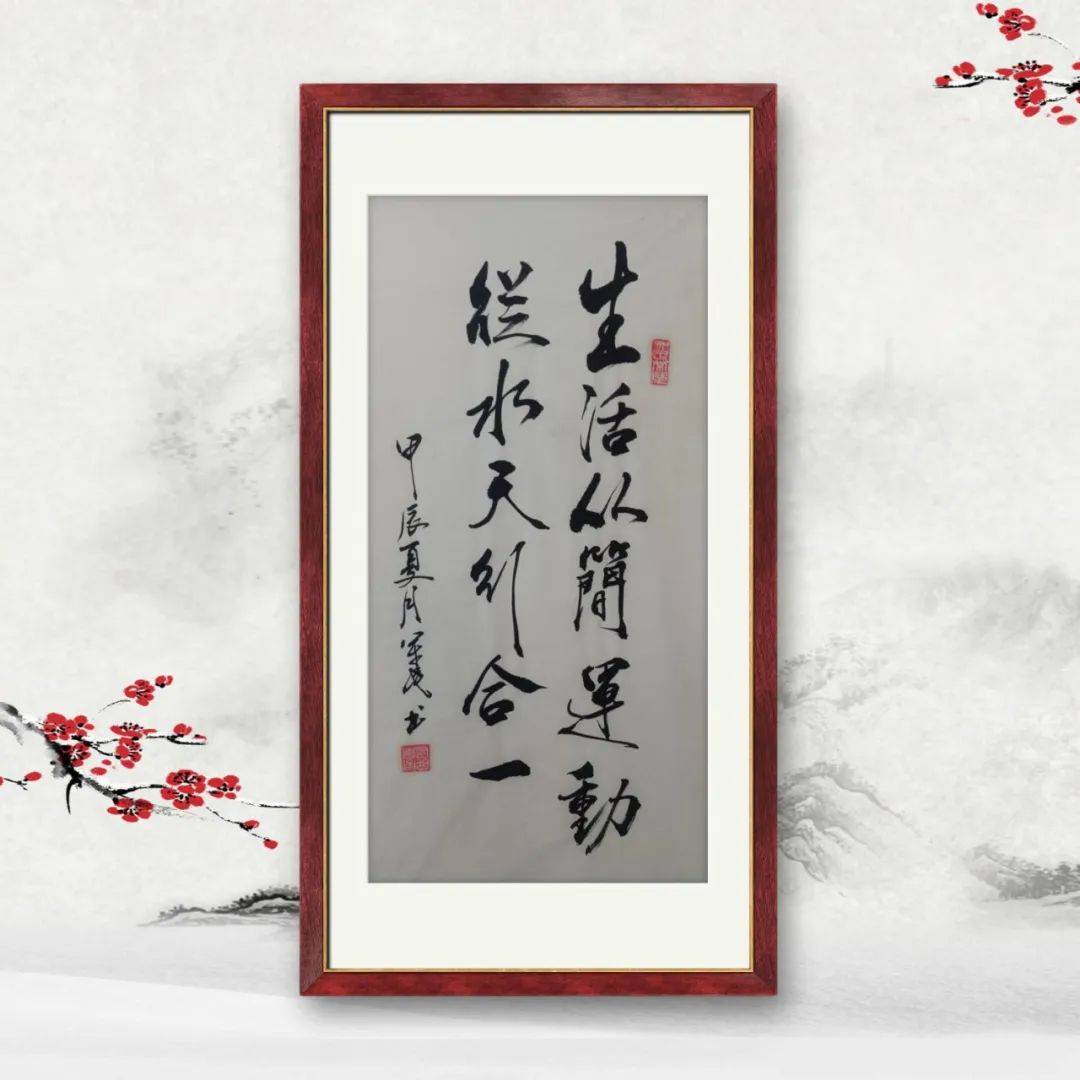 生活从簡運動
從水天合一
甲辰夏月书